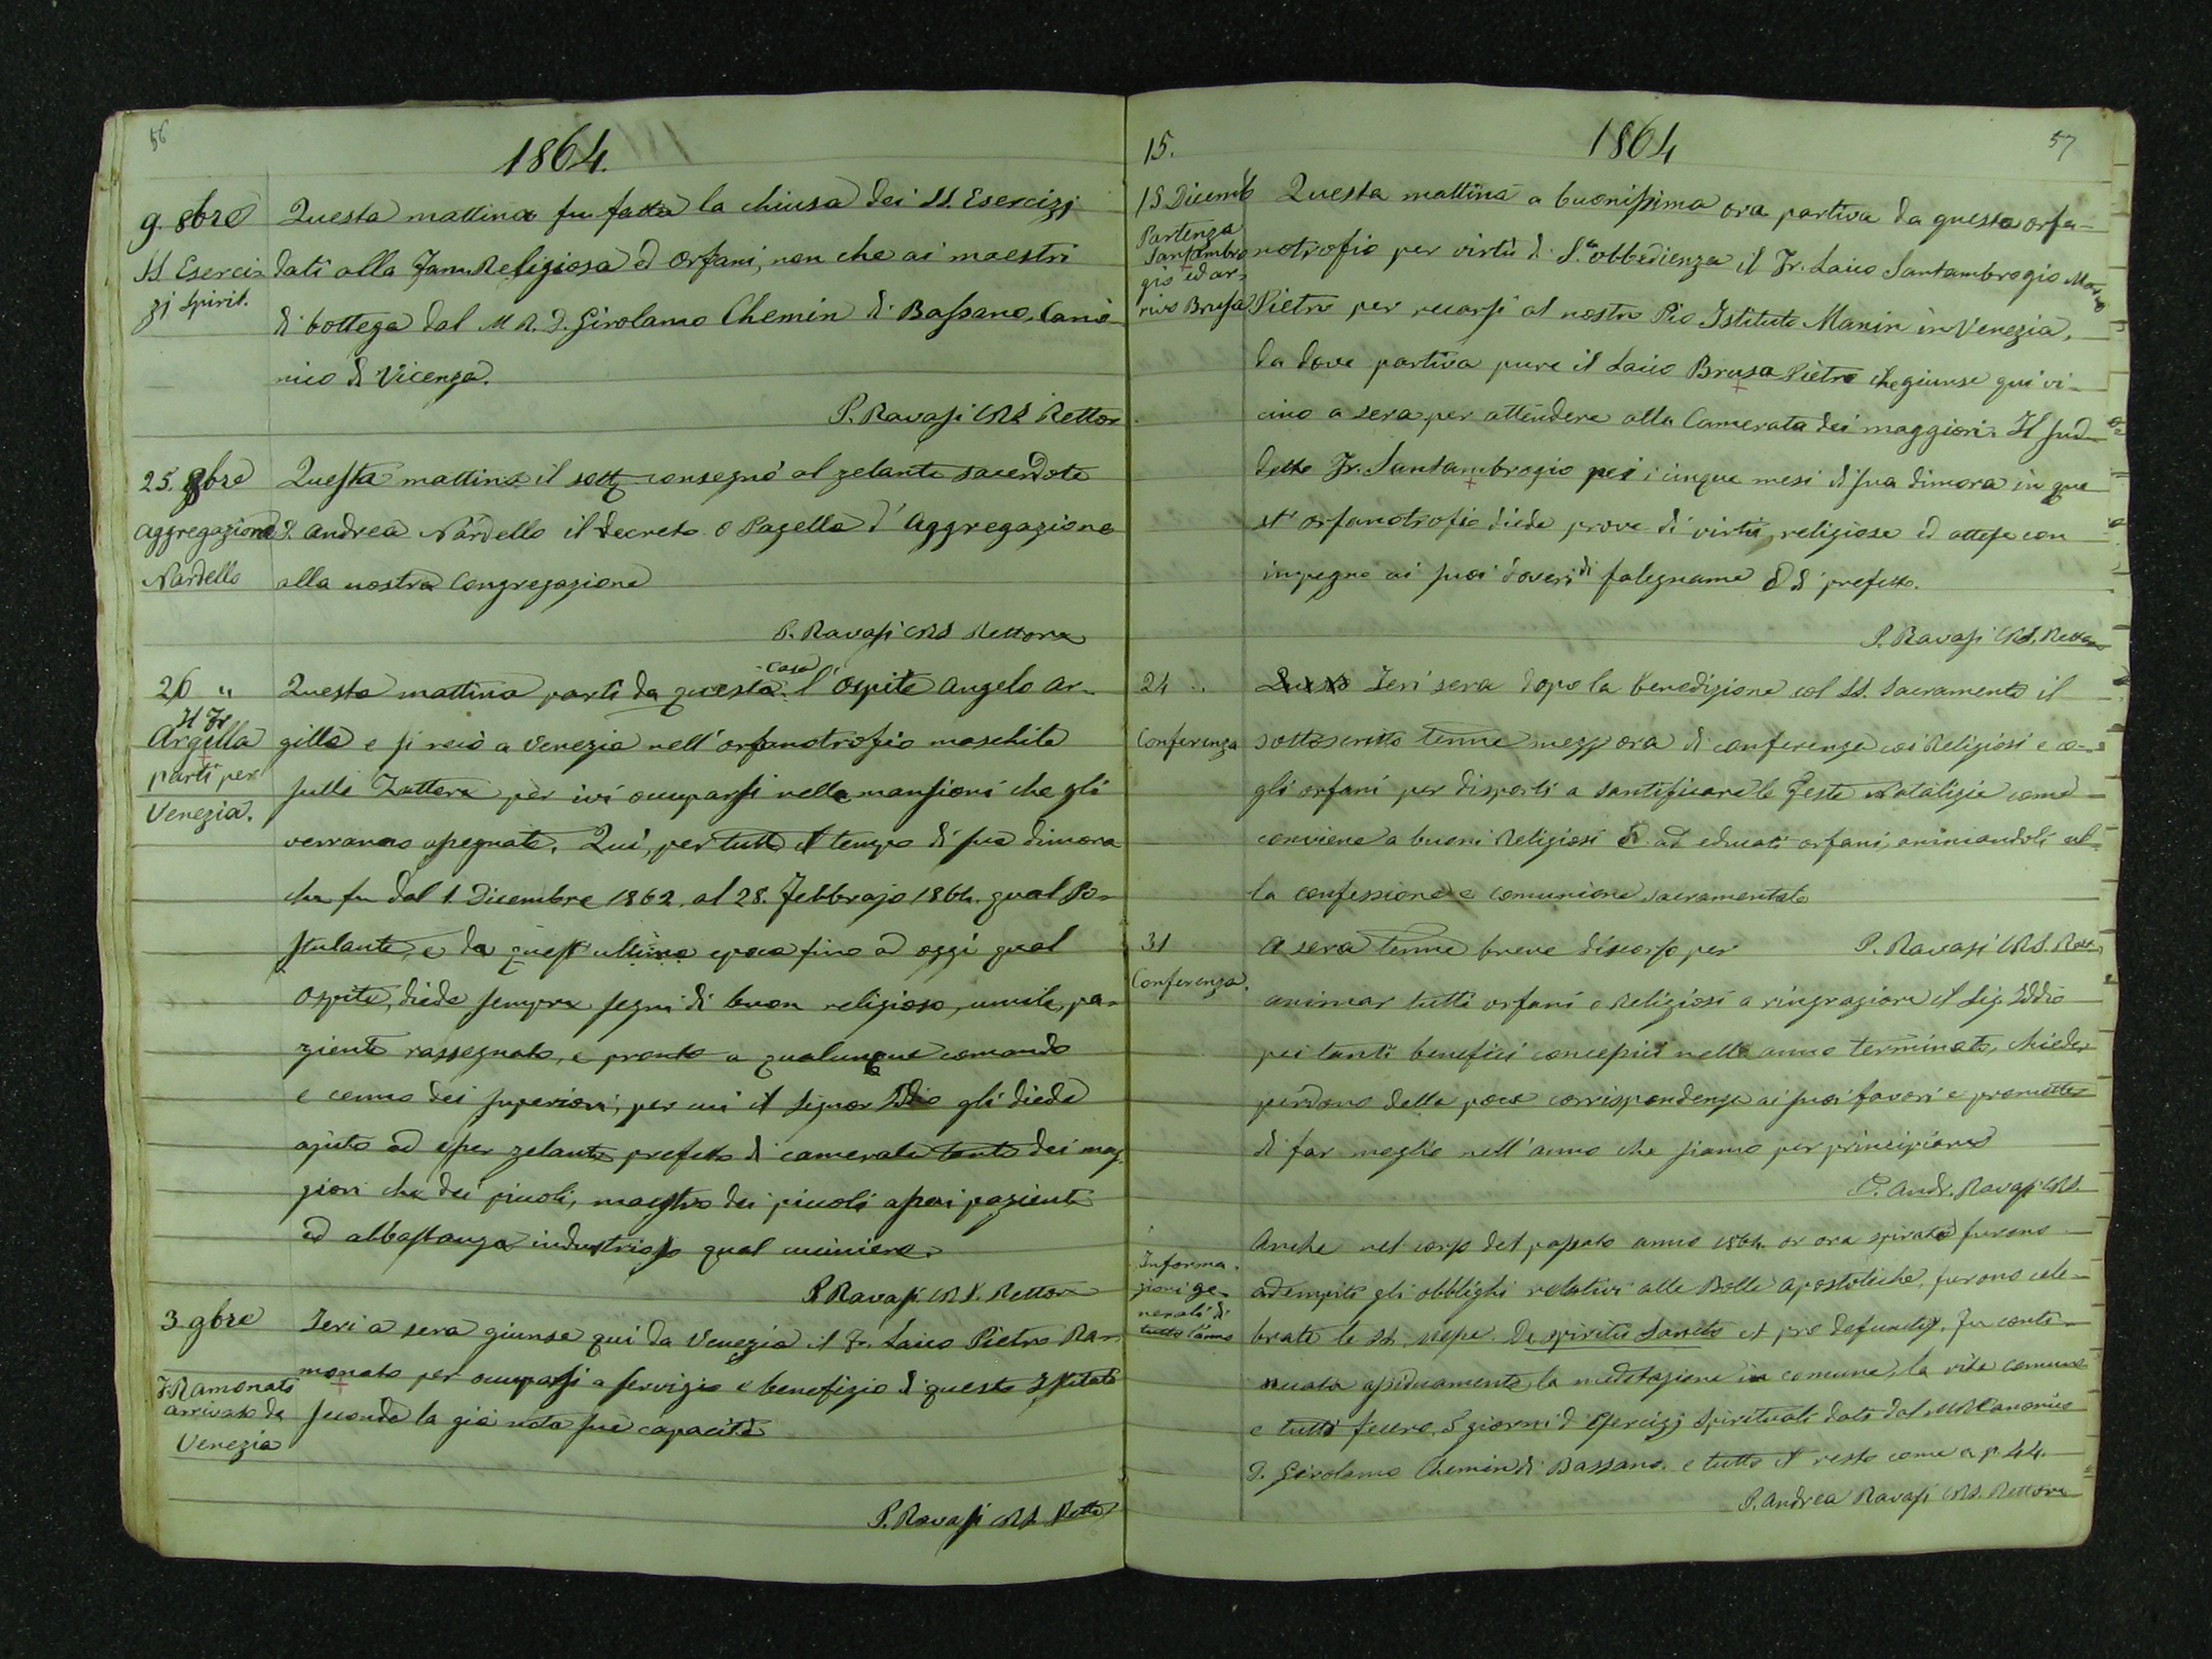 56
1864.
9. 8bre Questa mattina fu fatta la chiusa dei SS. Esercizj
SS. Eserci- dati alla Fam. Religiosa ed Orfani, non che ai maestri
zj Spirit. di bottega dal M. R. D. Girolamo Chemin di Bassano, Cano-
nico di Vicenza.
P. Ravasi CRS Rettor
25. 8bre Questa mattina il sott. consegnò al zelante Sacerdote
Aggregazione D. Andrea Nardello il decreto o Pagella d'Aggregazione
Nardello alla nostra Congregazione
P. Ravasi CRS Rettore
26 " Questa mattina partì da questa casa l'Ospite Angelo Ar-
Il Fr
Argella gilla e si recò a Venezia nell'orfanotrofio maschile
partì per sulle Zattere per ivi occuparsi nelle mansioni che gli
Venezia. verranno assegnate. Quì, per tutto il tempo di sua dimora
che fu dal 1. Dicembre 1862. al 28. Febbrajo 1864. qual Po-
stulante, e da quest'ultima epoca fino ad oggi qual
Ospite, diede sempre segni di buon religioso, umile, pa-
ziente rassegnato, e pronto a qualunque comando
e cenno dei superiori, per cui il Signor Iddio gli diede
ajuto ad esser zelante prefetto di camerata tanto dei mag-
giori che dei piccoli, maestro dei piccoli assai paziente
ed abbastanza industrioso qual
P. Ravasi CRS. Rettore
3 9bre Ieri a sera giunse qui da Venezia il Fr. Laico Pietro Ra-
F. Ramonato monato per occuparsi a servizio e benefizio di questo Istituto
arrivato da secondo la già nota sue capacità
Venezia
P. Ravasi CRS. Retto
57
1864
15.
15 Dicemb Questa mattina a buonissima ora partiva da questo orfa-
Partenza
Santambro notrofio per virtù di S.ta obbedienza il Fr. Laico Santambrogio
gio ed ar-
rivo Brusa Pietro per recarsi al nostro Pio Istituto Manin in Venezia,
da dove partiva pure il Laico Brusa Pietro che giunse qui vi-
cino a sera per attendere alla Camerata dei maggiori. Il sud-
detto Fr. Santambrogio pei i cinque mesi di sua dimora in que
st'orfanotrofio diede prove di virtù religiose ed attese con
impegno ai suoi doveri di falegname e di prefetto.
P. Ravasi CRS. Rettore
24 " Ieri sera dopo la benedizione col SS. Sacramento il
Conferenza sottoscritto tenne mezz'ora di conferenza coi Religiosi e co-
gli orfani per disporli a santificare le Feste Natalizie come
conviene a buoni Religiosi e ad educati orfani, animandoli al-
la confessione e comunione sacramentale
P. Ravasi CRS. Rett.
31 A sera tenne breve discorso per
Conferenza. animar tutti orfani e Religiosi a ringraziare il Sig. Iddio
pei tanti benefici concessici nell'anno terminato, chieder
perdono della poca corrispondenza ai suoi favori e prometter
di far meglio nell'anno che siamo per principiare
P. Andr. Ravasi CRS.
Anche nel corso del passato anno 1864. or ora spirato furono
Informa- adempiti gli obblighi relativi alle Bolle Apostoliche, furono cele-
zioni ge-
nerali di brate le SS. Messe De Spiritu Sancto et pro defunctis. Fu conti-
tutto l'anno nuata assiduamente la meditazione in comune, la vita comune
e tutti fecero 5 giorni d'Esercizj Spirituali dati dal M.R. Canonico
D. Girolamo Chemin di Bassano. e tutto il resto come a p. 44.
P. Andrea Ravasi CRS. Rettore